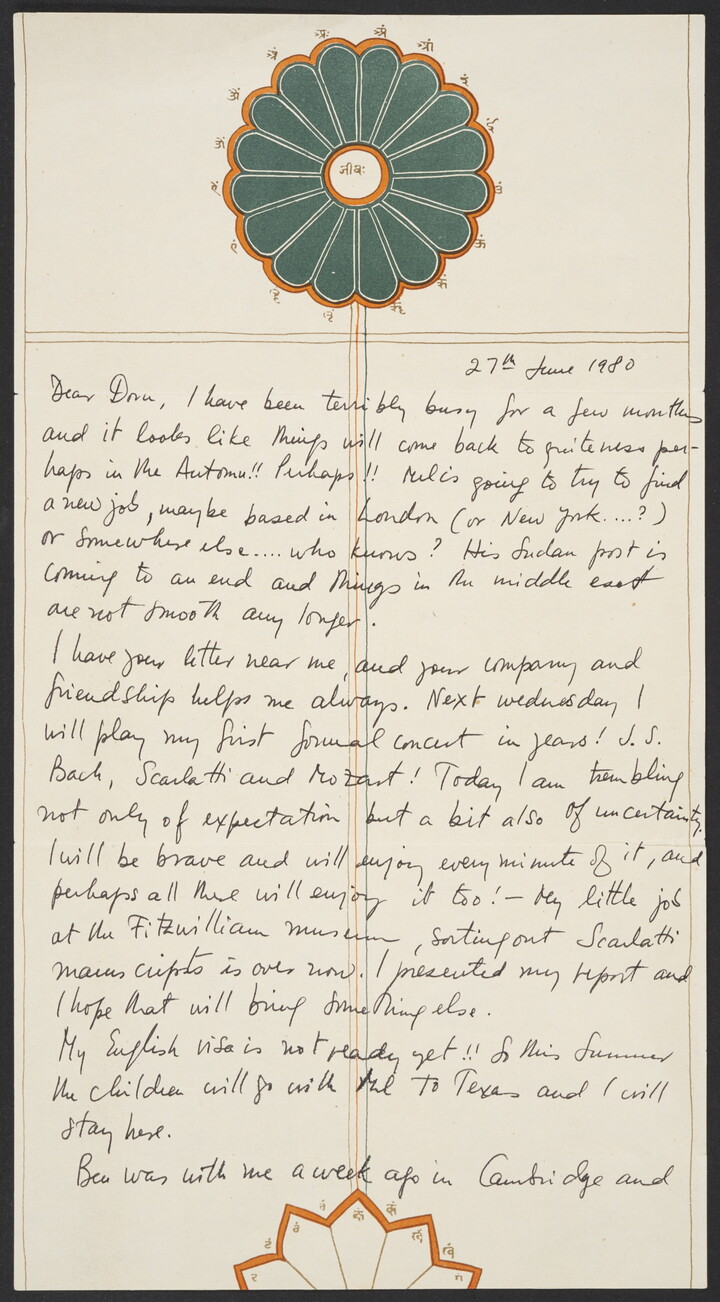 जीवः
27th June 1980
Dear Dorn, I have been terribly busy for a few months
and it looks like things will come back to quiteness per-
haps in the Automn!! Perhaps!! Mel is going to try to find
a new job, maybe based in London (or New York....?)
or somewhere else.... who knows? His Sudan post is
coming to an end and things in the middle east
are not smooth any longer.
I have your letter near me, and your company and
friendship helps me always. Next wednesday I
will play my first formal concert in years! J.S.
Bach, Scarlatti and Mozart! Today I am trembling
not only of expectation but a bit also of uncertainty.
I will be brave and will enjoy every minute of it, and
perhaps all there will enjoy it too! — My little job
at the Fitzwilliam museum, sorting out Scarlatti
manuscripts is over now. I presented my report and
I hope that will bring something else.
My English visa is not ready yet!! So this Summer
the children will go with Mel to Texas and I will
stay here.
Ben was with me a week ago in Cambridge and